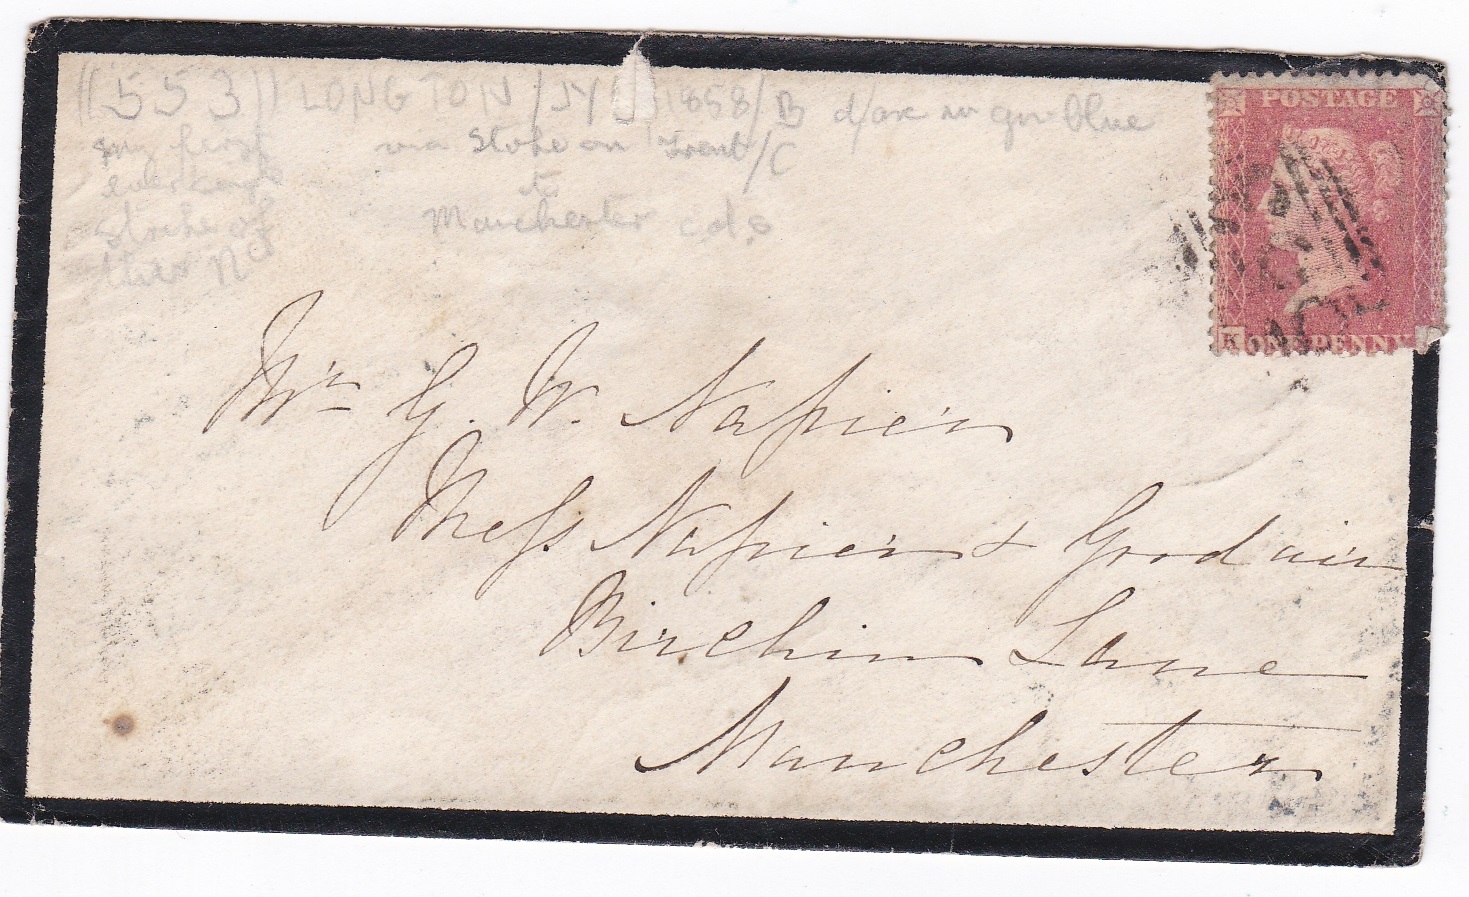 ((553)) LONGTON / JY 1858 / B d/arc in grn blue
my first via Stoke on Trent / C
ever
strike of to
this No Manchester cds
POSTAGE
K ONE PENNY
Mr G. W. Napier
Mess Napier & Goodair
Birchin Lane
Manchester